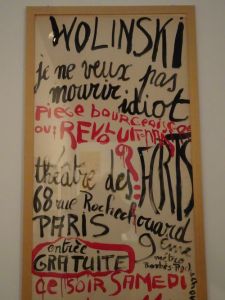 WOLINSKI
je ne veux pas
mourir idiot
piece bourgeoise
ou REVOLUT
théatre des ARTS
68 rue Rochechouard
PARIS 9eme
métro
entrée
GRATUITE
ce SOIR SAMEDI